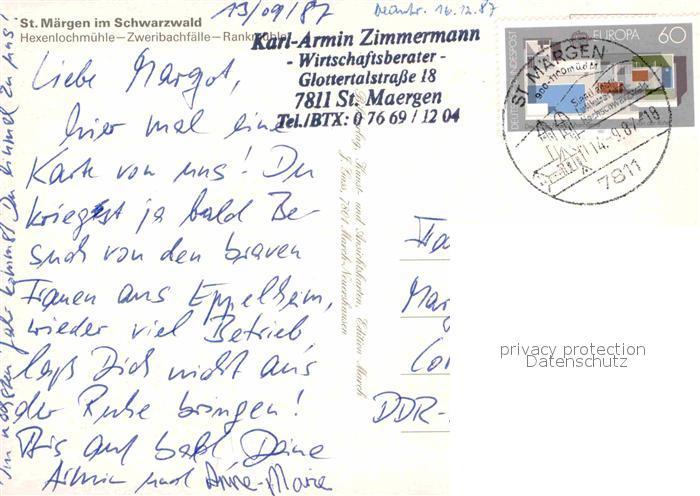 13/09/87
Beantw. 16.12.87
St. Märgen im Schwarzwald
Hexenlochmühle – Zweribachfälle – Rankmühle
Karl-Armin Zimmermann
- Wirtschaftsberater -
Glottertalstraße 18
7811 St. Maergen
Tel./BTX: 0 76 69 / 12 04
Liebe Margot,
hier mal eine
Karte von uns! Du
kriegst ja bald Be-
such von den braven
Frauen aus Eppelheim,
wieder viel Betrieb,
laß Dich nicht aus
der Ruhe bringen!
Bis auf bald Deine
Armin und Anne-Marie
Im nächsten Jahr kommst Du einmal zu uns!
Verlag, Kunst- und Ansichtskarten, Edition March
7801 March-Neuershausen
DEUTSCHE BUNDESPOST
EUROPA 60
ST. MÄRGEN
900-1100 m ü.d.M
14.-9.87-18
7811
DDR-
privacy protection
Datenschutz